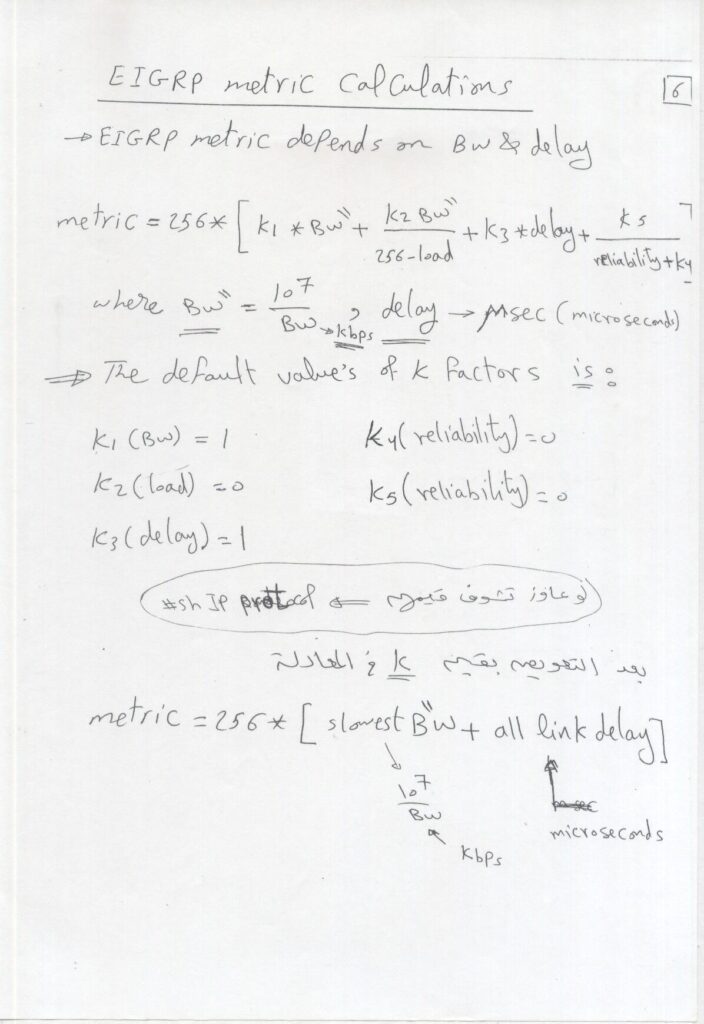 EIGRP metric Calculations
6
→ EIGRP metric depends on BW & delay
metric = 256 * [ K1 * BW" + K2 BW" / 256-load + K3 * delay + K5 / reliability + K4 ]
where BW" = 10^7 / BW → kbps , delay → μsec (microseconds)
⇒ The default value's of K factors is :
K1 (BW) = 1
K4 (reliability) = 0
K2 (load) = 0
K5 (reliability) = 0
K3 (delay) = 1
لو عاوز تشوف قيمهم ⇐ #sh IP protocol
بعد التعويض بقيم K في المعادلة
metric = 256 * [ slowest B"W + all link delay ]
10^7 / BW
microseconds
Kbps